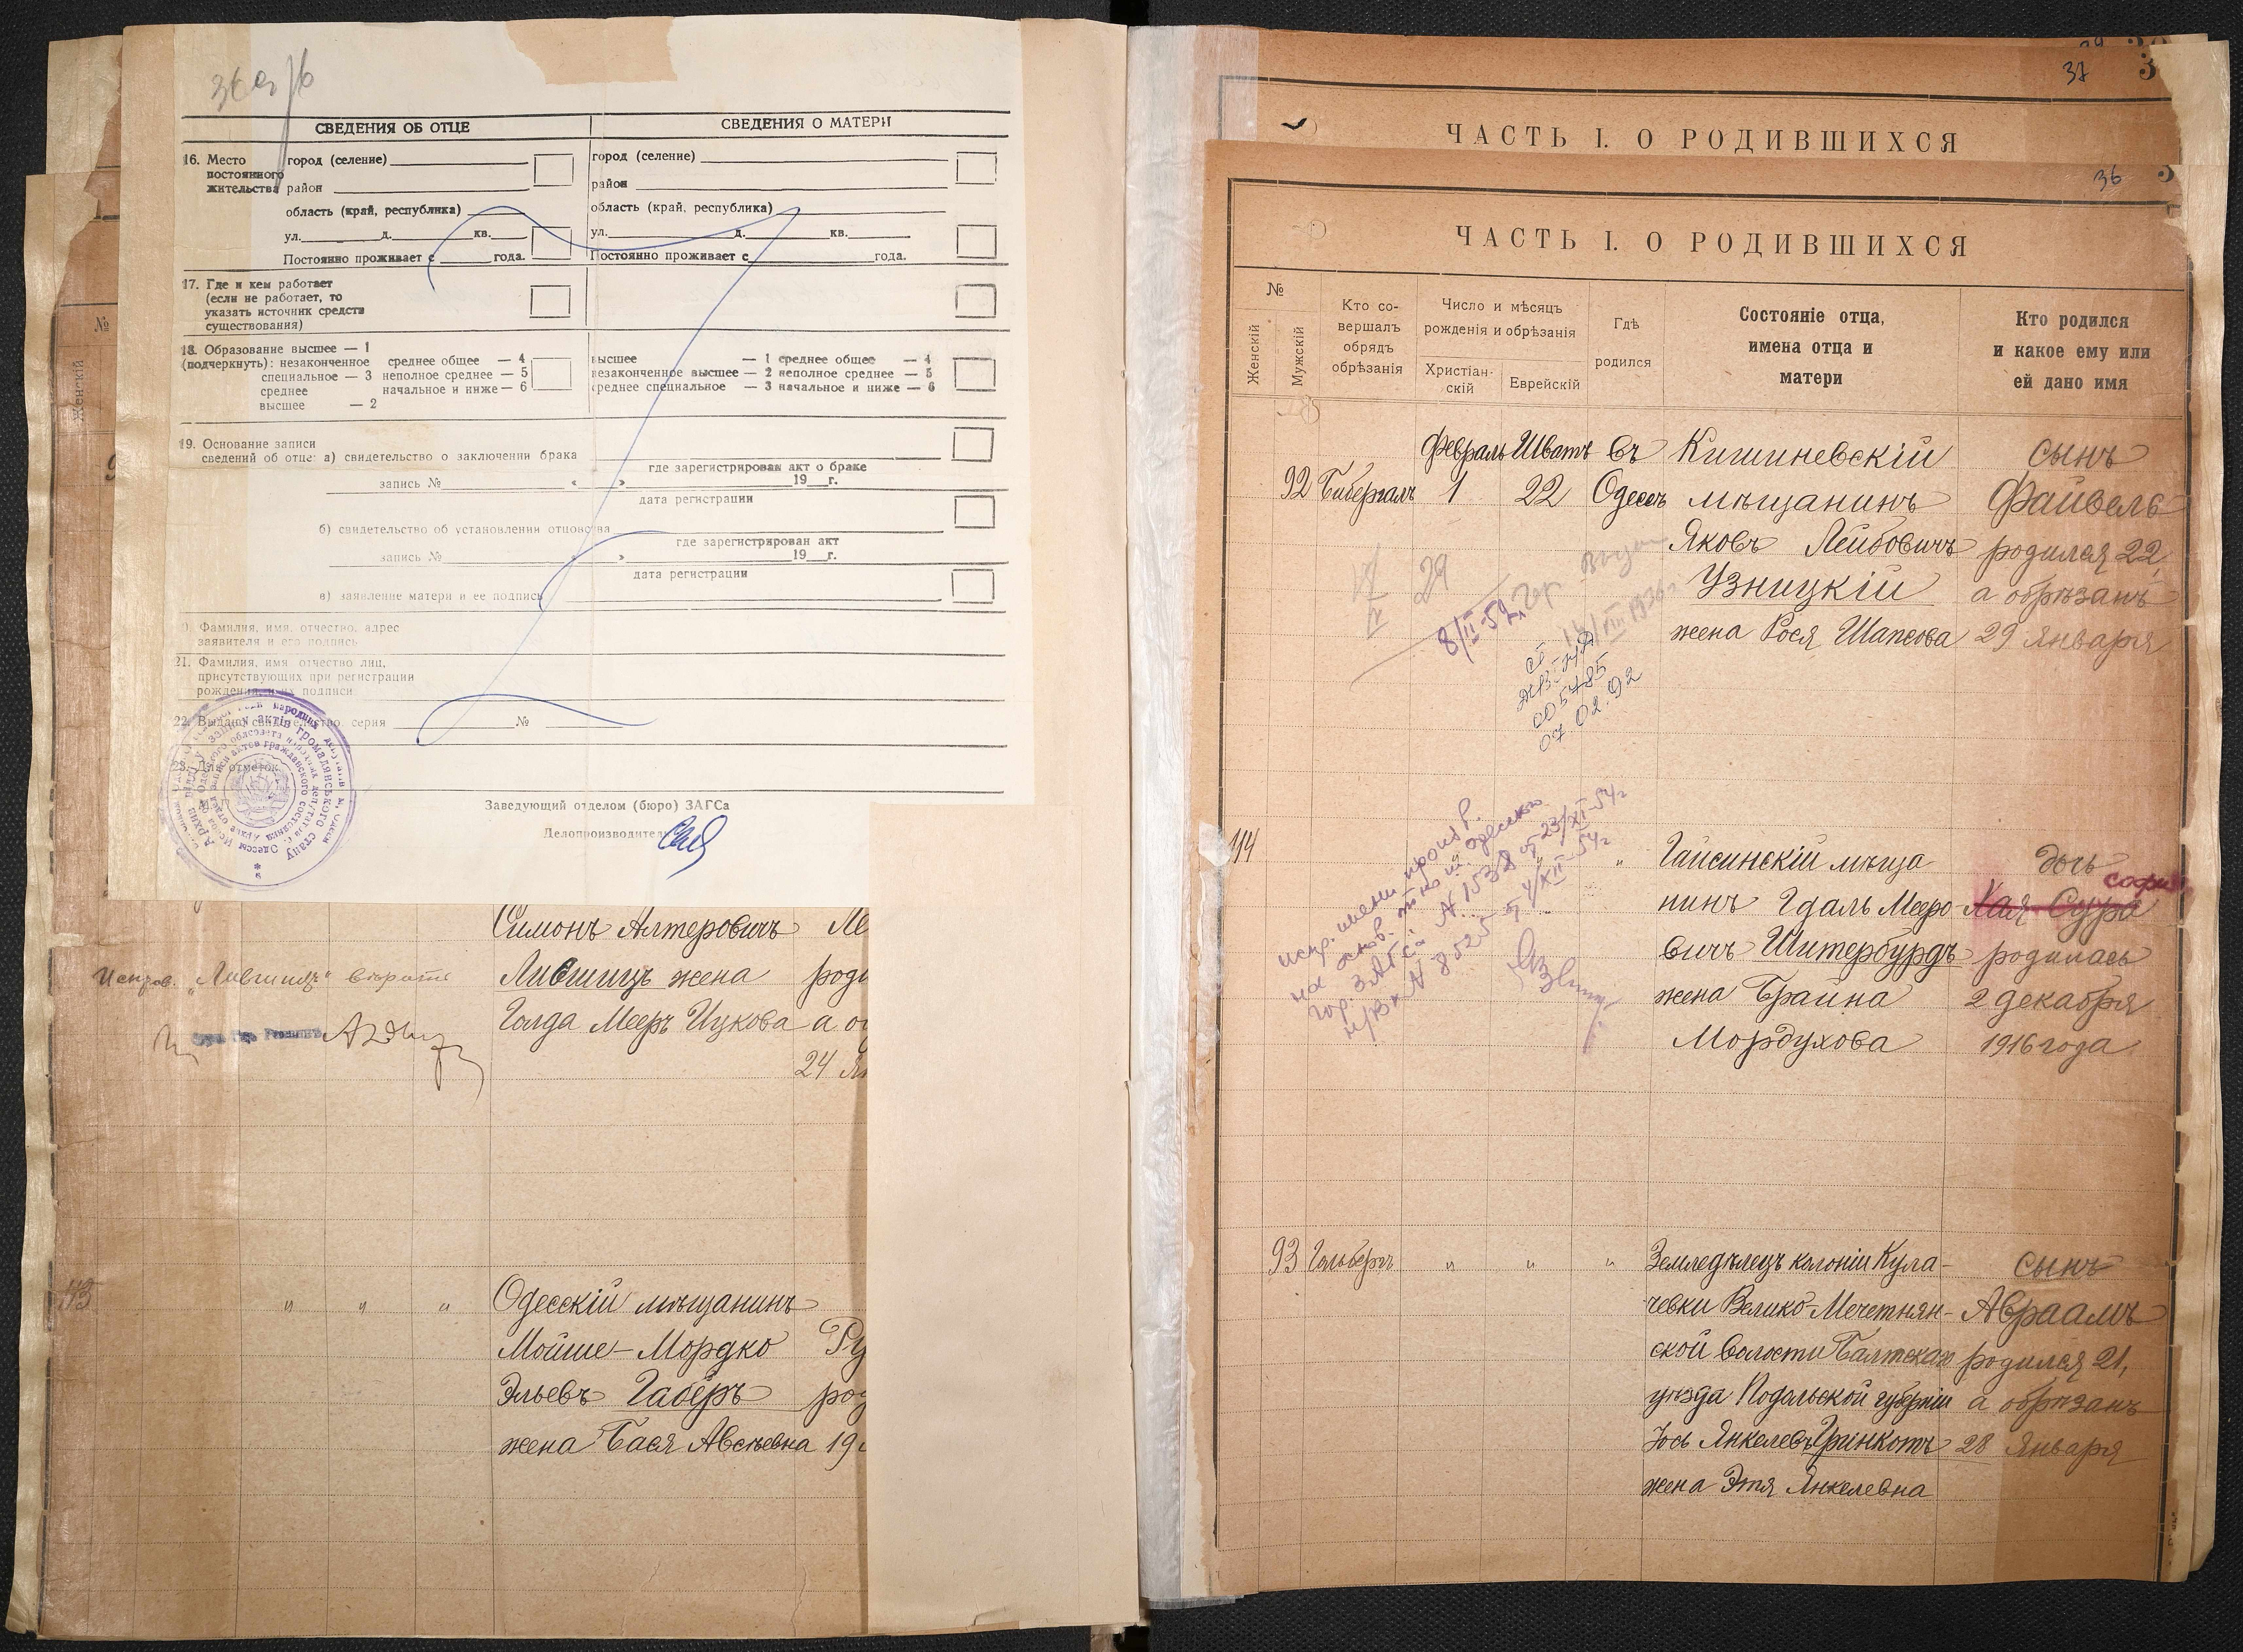 36
СВЕДЕНИЯ ОБ ОТЦЕ
СВЕДЕНИЯ О МАТЕРИ
16. Место постоянного жительства
город (селение)
район
область (край, республика)
ул. д. кв.
Постоянно проживает с года.
город (селение)
район
область (край, республика)
ул. д. кв.
Постоянно проживает с года.
17. Где и кем работает
(если не работает, то
указать источник средств
существования)
18. Образование высшее — 1
(подчеркнуть): незаконченное среднее общее — 4
специальное — 3 неполное среднее — 5
среднее начальное и ниже — 6
высшее — 2
высшее — 1 среднее общее — 4
незаконченное высшее — 2 неполное среднее — 5
среднее специальное — 3 начальное и ниже — 6
19. Основание записи
сведений об отце: а) свидетельство о заключении брака
где зарегистрирован акт о браке
запись № « » 19 г.
дата регистрации
б) свидетельство об установлении отцовства
где зарегистрирован акт
запись № « » 19 г.
дата регистрации
в) заявление матери и ее подпись
Фамилия, имя, отчество, адрес
заявителя и его подпись
21. Фамилия, имя отчество лиц,
присутствующих при регистрации
рождения, и их подписи
22. Выдано свидетельство серия №
23. Для отметок
Заведующий отделом (бюро) ЗАГСа
Делопроизводитель
№
Женскій
Симонъ Алтеровичъ Ле
Испров. „Лившицъ" вѣрить
Лившицъ жена роди
Голда Мееръ Ицкова а о
24 Ян
113 " " " Одесскій мѣщанинъ
Мойше-Мордко Ру
Эльевъ Габеръ род
жена Бася Авсѣевна 19
37
ЧАСТЬ I. О РОДИВШИХСЯ
36
ЧАСТЬ I. О РОДИВШИХСЯ
№
Женскій
Мужскій
Кто со-
вершалъ
обрядъ
обрѣзанія
Число и мѣсяцъ
рожденія и обрѣзанія
Христіан-
скій
Еврейскій
Гдѣ
родился
Состояніе отца,
имена отца и
матери
Кто родился
и какое ему или
ей дано имя
Февраль Шватъ въ Кишиневскій сынъ
92 Бибергалъ 1 22 Одессѣ мѣщанинъ Файвель
Яковъ Лейбовичъ родился 22,
Узницкій а обрѣзанъ
жена Рося Шапсова 29 Января
29
8/II-52г.
1936г
005485
07.02.92
испр. имени произв.
на основ.
гор. ЗАГСа № 1538 от 23/XI-54г
№ 8525 от 4/XII-54г
114 " Гайсинскій мѣща дочь
софия
нинъ Гдаль Мееро Хая-Сура
вичъ Штербурдъ родилась
жена Брайна 2 декабря
Мордухова 1916 года
93 Гольбергъ " " " Земледѣлецъ колоніи Кула- сынъ
чевки Велико-Мечетнян- Авраамъ
ской волости Балтскаго родился 21,
уѣзда Подольской губерніи а обрѣзанъ
Іось Янкелевъ Гринкотъ 28 Января
жена Этя Янкелевна